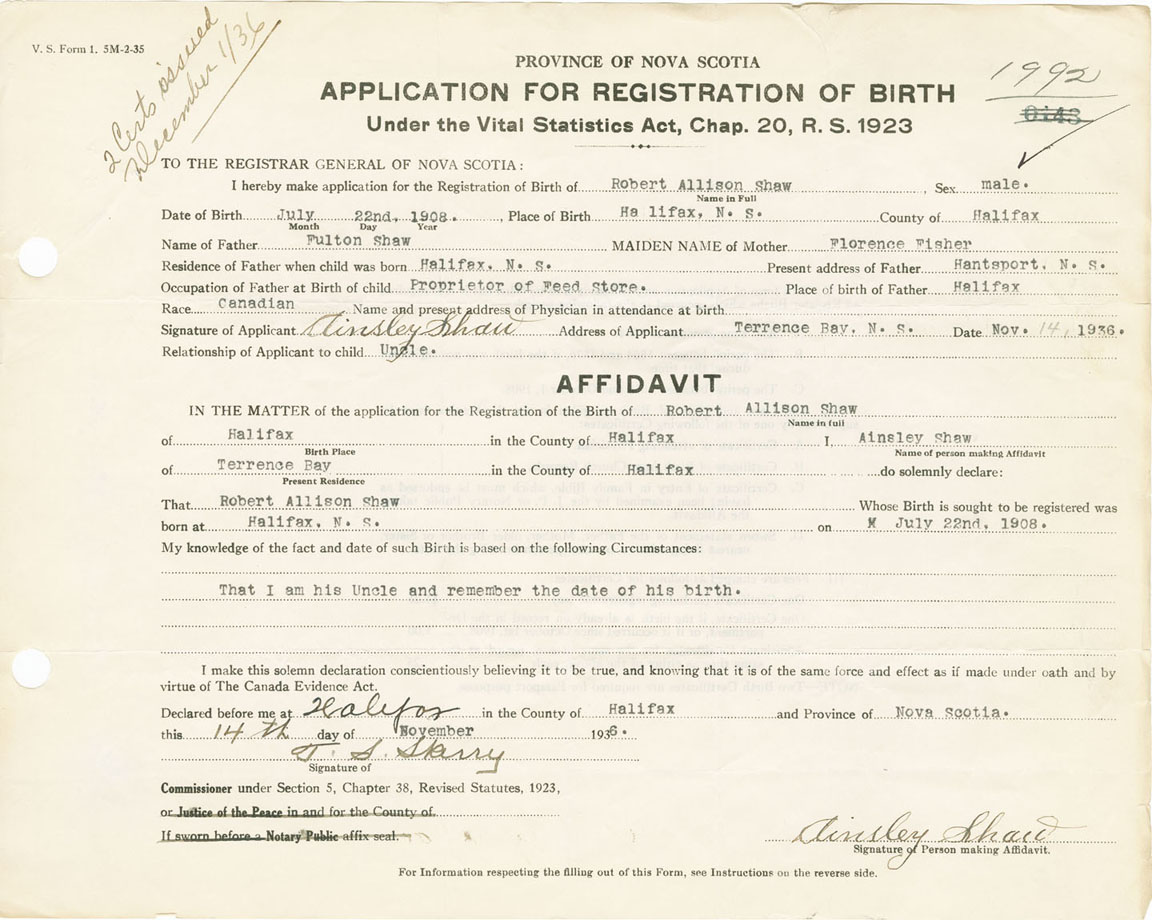 V. S. Form 1. 5M-2-35
2 Certs issued
December 1/36
PROVINCE OF NOVA SCOTIA
APPLICATION FOR REGISTRATION OF BIRTH
Under the Vital Statistics Act, Chap. 20, R. S. 1923
1992
0143
TO THE REGISTRAR GENERAL OF NOVA SCOTIA:
I hereby make application for the Registration of Birth of Robert Allison Shaw, Sex male.
Name in Full
Date of Birth July 22nd, 1908., Place of Birth Ha lifax, N. S. County of Halifax
Month Day Year
Name of Father Fulton Shaw MAIDEN NAME of Mother Florence Fisher
Residence of Father when child was born Halifax, N. S. Present address of Father Hantsport, N. S.
Occupation of Father at Birth of child Proprietor of Feed Store. Place of birth of Father Halifax
Race Canadian Name and present address of Physician in attendance at birth
Signature of Applicant Ainsley Shaw Address of Applicant Terrence Bay, N. S. Date Nov. 14, 1936.
Relationship of Applicant to child Uncle.
AFFIDAVIT
IN THE MATTER of the application for the Registration of the Birth of Robert Allison Shaw
Name in full
of Halifax in the County of Halifax I, Ainsley Shaw
Birth Place Name of person making Affidavit
of Terrence Bay in the County of Halifax do solemnly declare:
Present Residence
That Robert Allison Shaw Whose Birth is sought to be registered was
born at Halifax, N. S. on M July 22nd, 1908.
My knowledge of the fact and date of such Birth is based on the following Circumstances:
That I am his Uncle and remember the date of his birth.
I make this solemn declaration conscientiously believing it to be true, and knowing that it is of the same force and effect as if made under oath and by
virtue of The Canada Evidence Act.
Declared before me at Halifax in the County of Halifax and Province of Nova Scotia.
this 14 th day of November 1936.
T. S.
Signature of
Commissioner under Section 5, Chapter 38, Revised Statutes, 1923,
or Justice of the Peace in and for the County of
If sworn before a Notary Public affix seal.
Ainsley Shaw
Signature of Person making Affidavit.
For Information respecting the filling out of this Form, see Instructions on the reverse side.